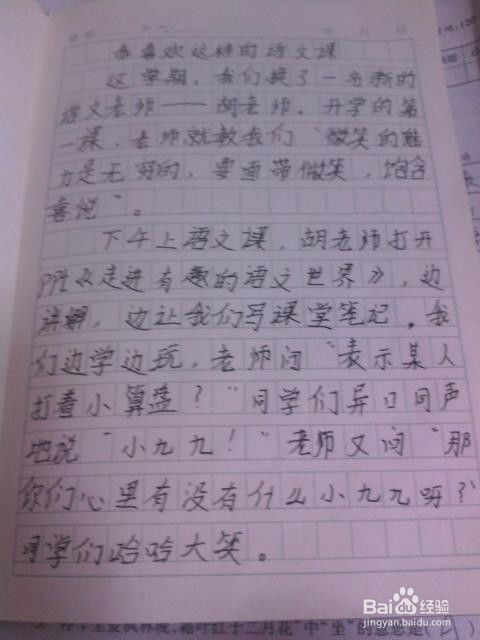 我喜欢这样的语文课
这学期，我们换了一名新的
语文老师——胡老师．开学的第
一课，老师就教我们“微笑的魅
力是无穷的，要面带微笑，饱含
喜悦”。
下午上语文课，胡老师打开
PPt《走进有趣的语文世界》，边
讲解，边让我们写课堂笔记．我
们边学边玩，老师问“表示某人
打着小算盘？”同学们异口同声
地说“小九九！”老师又问“那
你们心里有没有什么小九九呀？”
同学们哈哈大笑。
Baidu 经验
jingyan.baidu.com
霜叶红于二月花"中"坐"的意思是(